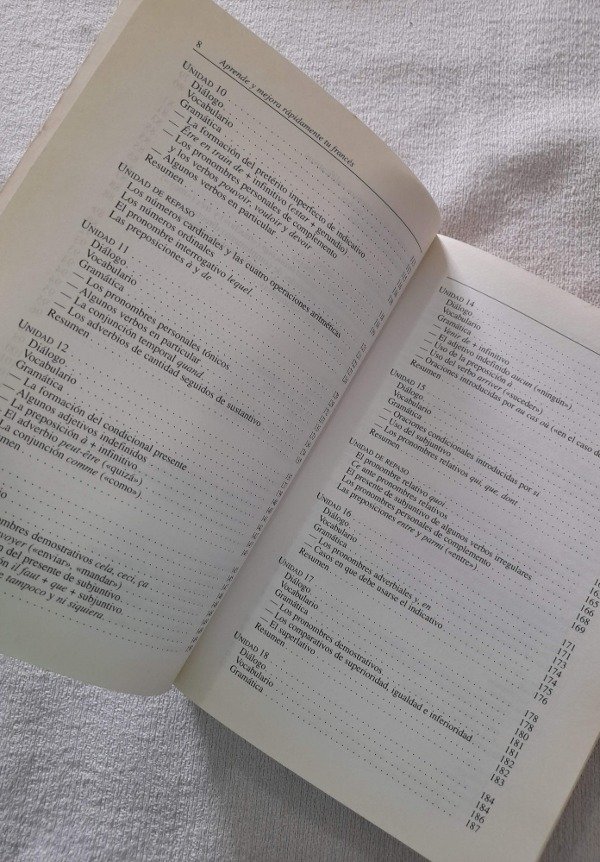 8
Aprende y mejora rápidamente tu francés
UNIDAD 10
Diálogo
Vocabulario
Gramática
— La formación del pretérito imperfecto de indicativo
— Être en train de + infinitivo (estar + gerundio)
— Los pronombres personales de complemento
y los verbos pouvoir, vouloir y devoir
— Algunos verbos en particular
Resumen
UNIDAD DE REPASO
Los números cardinales y las cuatro operaciones aritméticas
Los números ordinales
El pronombre interrogativo lequel
Las preposiciones à y de
UNIDAD 11
Diálogo
Vocabulario
Gramática
— Los pronombres personales tónicos
— Algunos verbos en particular
— La conjunción temporal quand
— Los adverbios de cantidad seguidos de sustantivo
Resumen
UNIDAD 12
Diálogo
Vocabulario
Gramática
— La formación del condicional presente
— Algunos adjetivos indefinidos
— La preposición à + infinitivo
El adverbio peut-être («quizá»)
La conjunción comme («como»)
demostrativos cela, ceci, ça
(«enviar», «mandar»)
del presente de subjuntivo
il faut + que + subjuntivo
tampoco y ni siquiera
UNIDAD 14
Diálogo
Vocabulario
Gramática
— Venir de + infinitivo
— El adjetivo indefinido aucun («ningún»)
— Uso de la preposición à
— Uso del verbo arriver («suceder»)
— Oraciones introducidas por au cas où («en el caso de
Resumen
UNIDAD 15
Diálogo
Vocabulario
Gramática
— Oraciones condicionales introducidas por si
— Uso del subjuntivo
— Los pronombres relativos qui, que, dont
Resumen
UNIDAD DE REPASO
El pronombre relativo quoi
Ce ante pronombres relativos
El presente de subjuntivo de algunos verbos irregulares
Los pronombres personales de complemento
Las preposiciones entre y parmi («entre»)
UNIDAD 16
Diálogo
Vocabulario
Gramática
— Los pronombres adverbiales y, en
— Casos en que debe usarse el indicativo
Resumen
UNIDAD 17
Diálogo
Vocabulario
Gramática
— Los pronombres demostrativos
— Los comparativos de superioridad, igualdad e inferioridad
— El superlativo
Resumen
UNIDAD 18
Diálogo
Vocabulario
Gramática
165
166
168
169
171
171
173
174
174
175
176
178
178
180
181
181
182
182
183
184
184
186
187